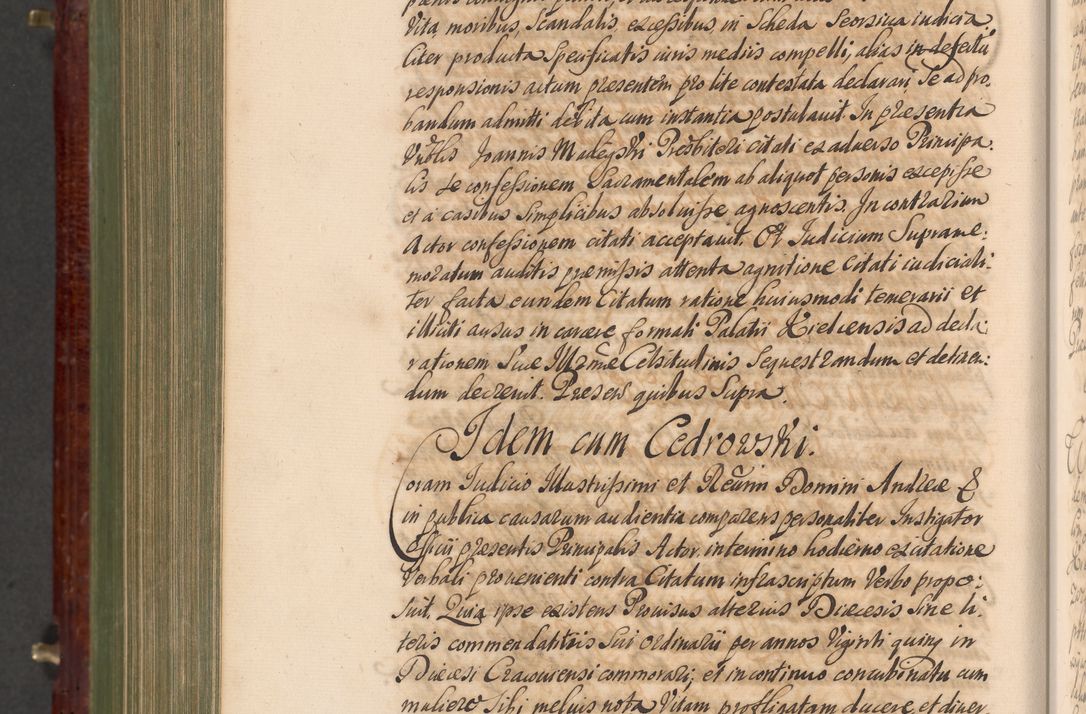 Vita moribus, Scandalis, excessibus, in Scheda Seorsiva iudicia
liter producta Specificatis iuris mediis compelli, alias in defectu
responsionis actum presentem pro lite contestata declarari, Se ad pro
bandum admitti debita cum instantia postulavit. In presentia
Vrblis Joannis Małeyski Presbiteri citati ex adverso Principa
lis se confessionem Sacramentalem ab aliquot personis excepisse
et a casibus Simplicibus absoluisse agnoscentis. In contrarium
Actor confessionem citati acceptavit. Et Iudicium Suprame:
moratum auditis præmissis attenta agnitione Citati iudiciali:
ter facta eundem Citatum ratione huiusmodi temerarii et
illiciti ausus in carcere formali Palatii Kielcensis ad decla:
rationem Suæ Illrmæ Celsitudinis Sequestrandum et detinen:
dum decrevit. Presen quibus Supra.
Idem cum Cedrowski.
Coram Iudicio Illustrissimi et Reurn Domini Andreæ &
in publica causarum audientia comparens personaliter Instigator
Officii presentis Principalis Actor in termino hodierno ex citatione
Verbali provenienti contra Citatum infrascriptum Verbo propo:
suit. Quia ipse existens Provisus alterius Diæcesis Sine li:
teris commendatitiis Sui Ordinarii per annos Viginti quinq in
Diæcesi Cracoviensi commorari, et in continuo concubinatu cum
muliere Sibi melius nota Vitam profligatam ducere, et diver